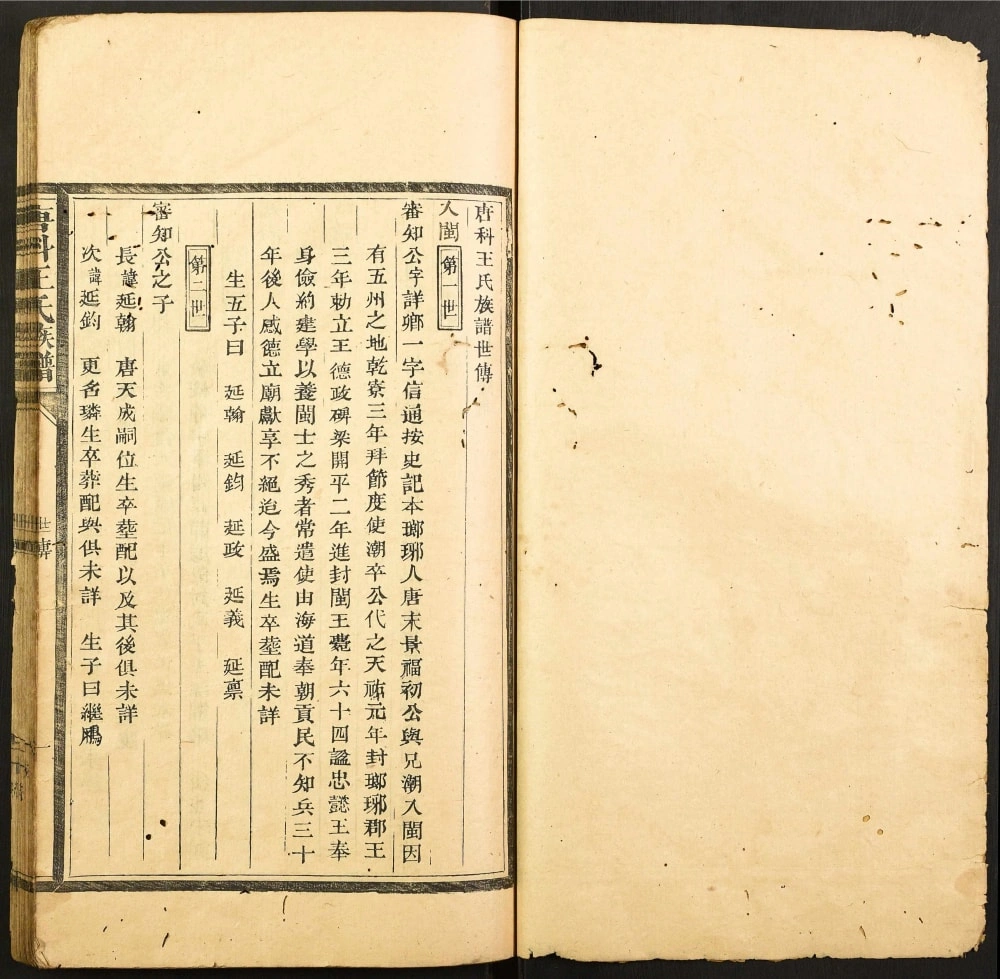 唐科王氏族譜世傳
入閩 第一世
審知公字詳鄉一字信通按史記本瑯琊人唐末景福初公與兄潮入閩因
有五州之地乾寮三年拜節度使潮卒公代之天祐元年封瑯琊郡王
三年勅立王德政碑梁開平二年進封閩王薨年六十四謚忠懿王奉
身儉約建學以養閩士之秀者常遣使由海道奉朝貢民不知兵三十
年後人感德立廟獻享不絕迨今盛焉生卒塟配未詳
生五子曰 延翰 延鈞 延政 延義 延禀
第二世
審知公之子
長諱延翰 唐天成嗣位生卒塟配以及其後俱未詳
次諱延鈞 更名璘生卒葬配與俱未詳 生子曰繼鵬
唐科王氏族譜
世傳